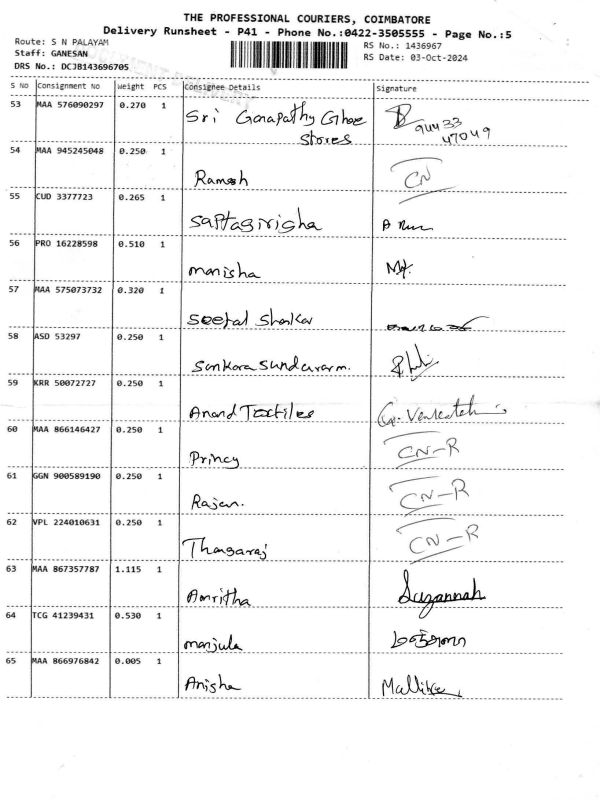 THE PROFESSIONAL COURIERS, COIMBATORE
Delivery Runsheet - P41 - Phone No.:0422-3505555 - Page No.:5
Route: S N PALAYAM
Staff: GANESAN
DRS No.: DCJB143696705
RS No.: 1436967
RS Date: 03-Oct-2024
S No Consignment No Weight PCS Consignee Details Signature
53 MAA 576090297 0.270 1 Sri Ganapathy Ghee
Stores
94433
47049
54 MAA 945245048 0.250 1 Ramesh CN
55 CUD 3377723 0.265 1 Saptagirigha
56 PRO 16228598 0.510 1 manisha
57 MAA 575073732 0.320 1 Seetal Shankar
58 ASD 53297 0.250 1 Sankara Sundararm.
59 KRR 50072727 0.250 1 Anand Textiles G. Venkatesh
60 MAA 866146427 0.250 1 Princy CN-R
61 GGN 900589190 0.250 1 Rajan. CN-R
62 VPL 224010631 0.250 1 Thangaraj CN-R
63 MAA 867357787 1.115 1 Amritha Suzannah
64 TCG 41239431 0.530 1 manjula மஞ்சுளா
65 MAA 866976842 0.005 1 Anisha Mallika